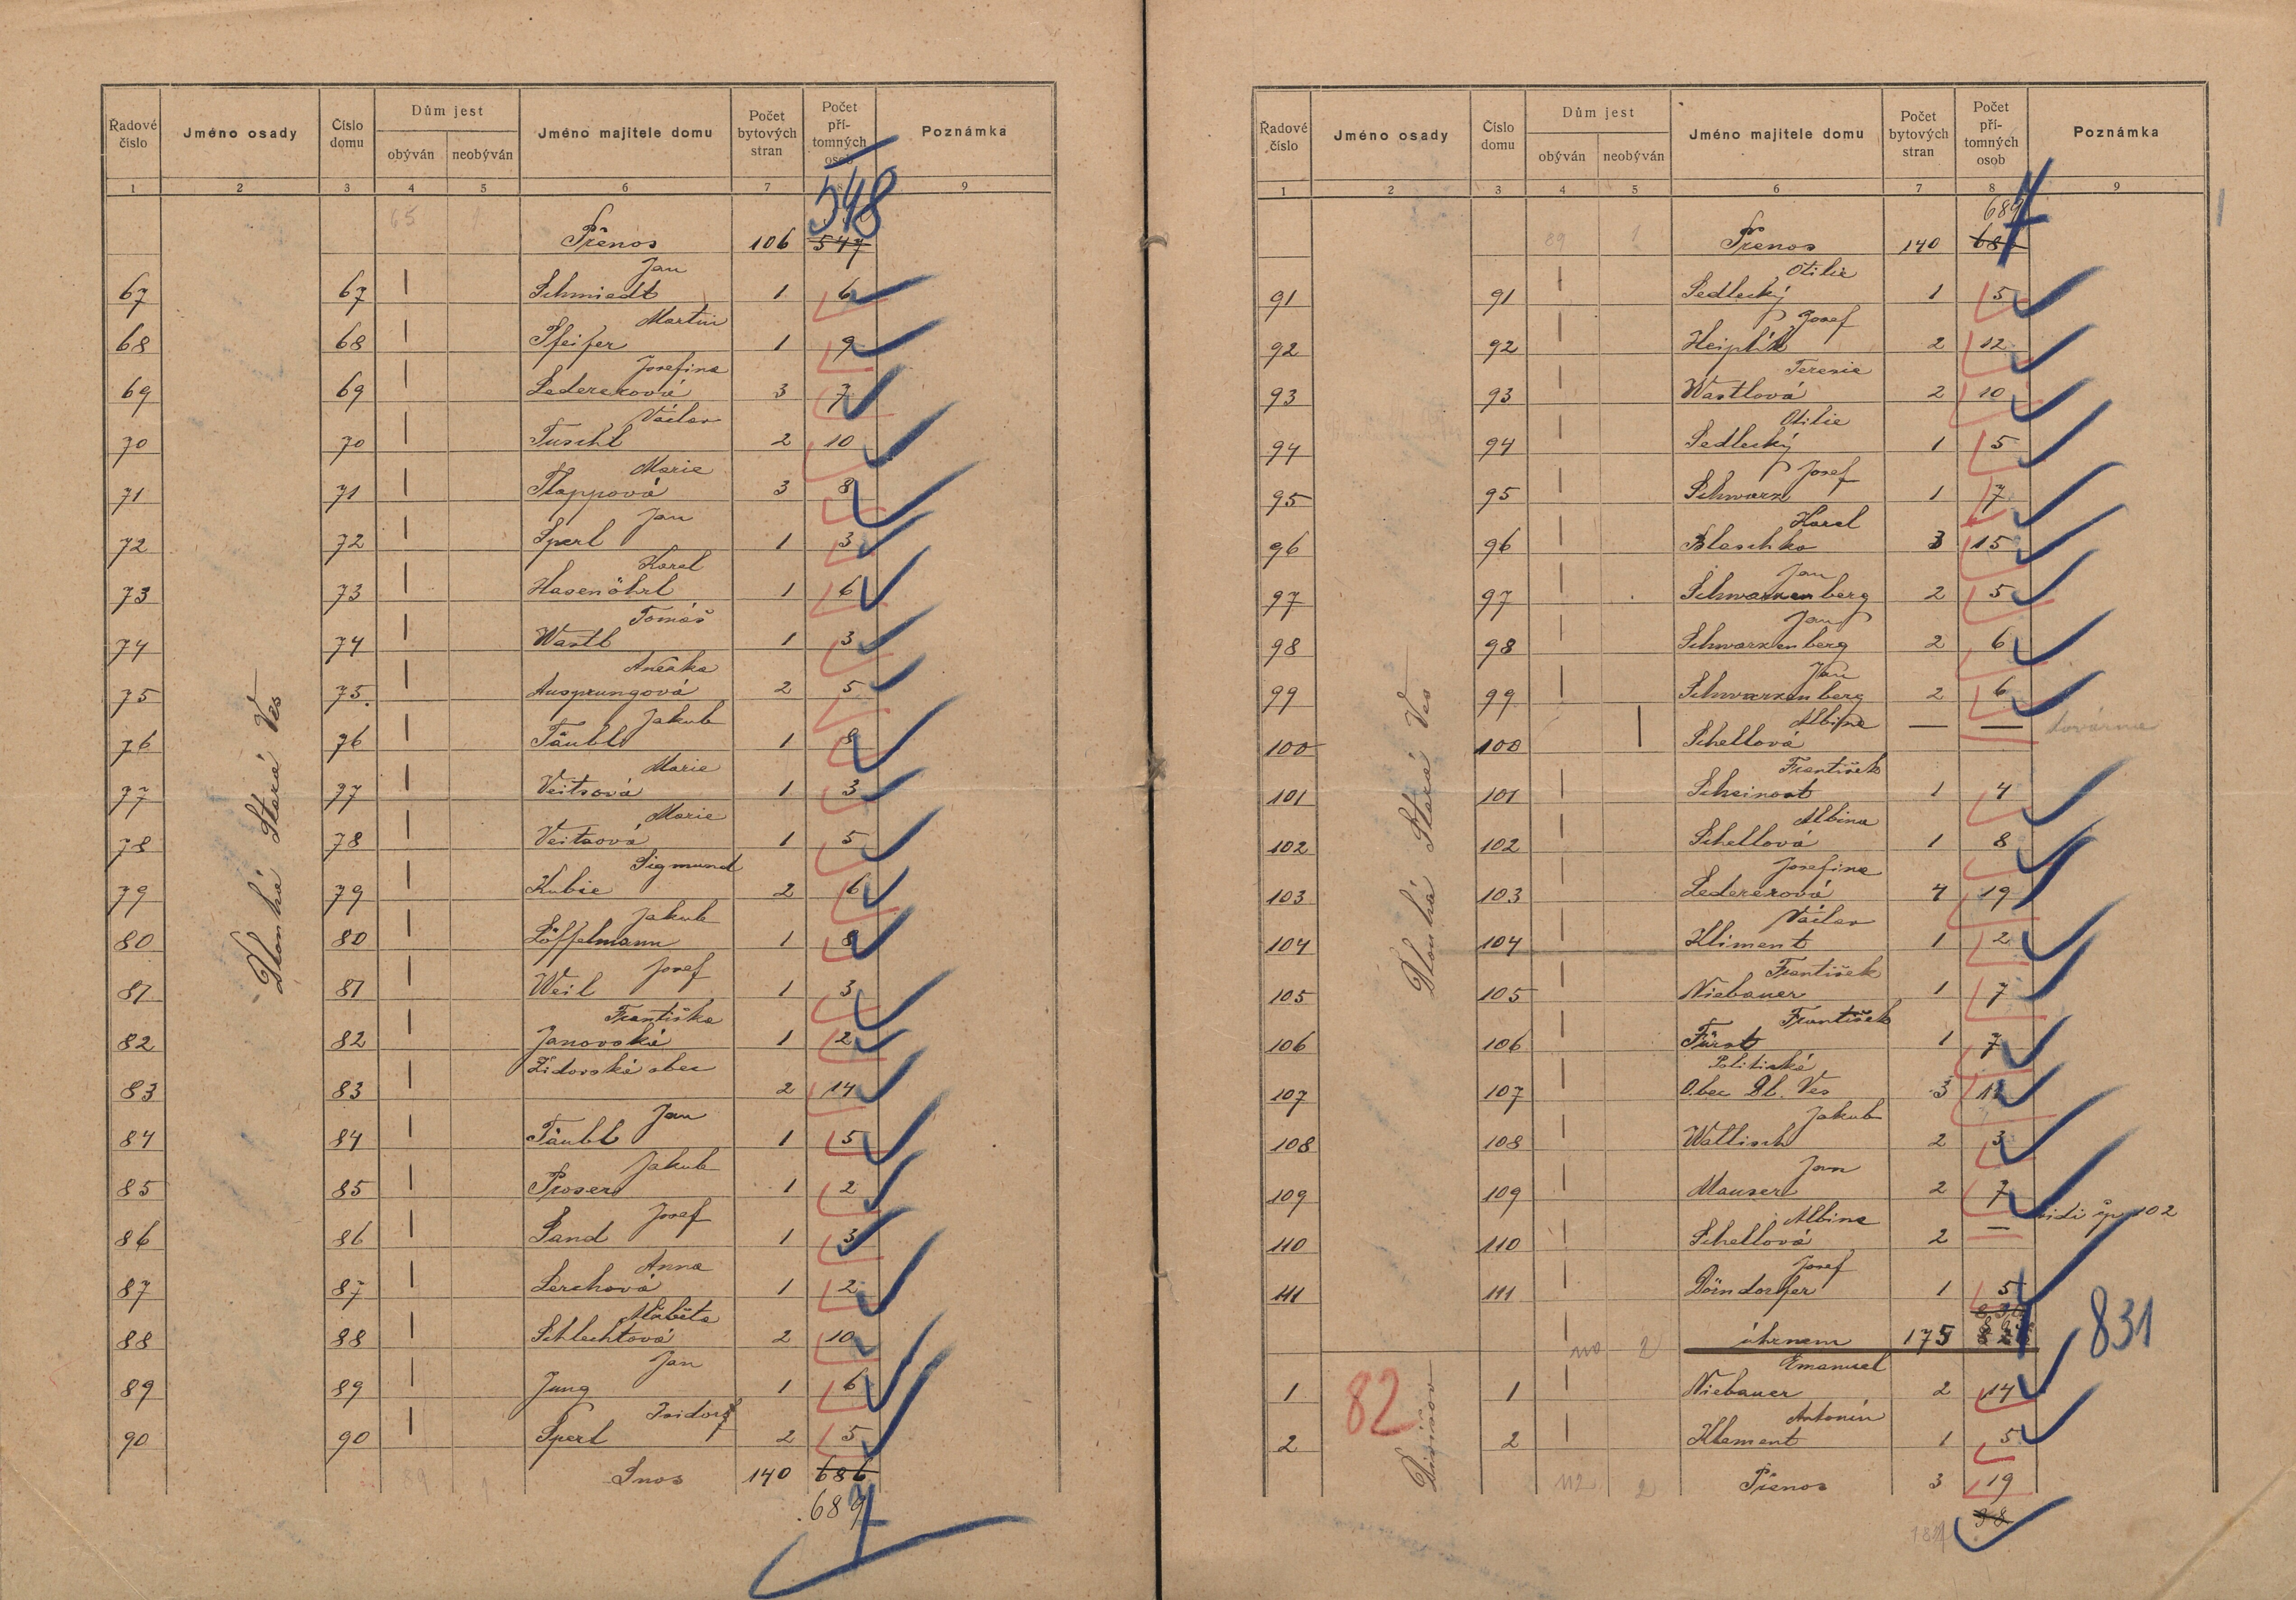 Řadové číslo Jméno osady Číslo domu Dům jest obýván neobýván Jméno majitele domu Počet bytových stran Počet přítomných osob Poznámka
1 2 3 4 5 6 7 8 9
548
65 1 Přenos 106 547
Dlouhá Stará Ves
67 67 | Schmiedt Jan 1 6
68 68 | Pfeifer Martin 1 9
69 69 | Ledererová Josefina 3 7
70 70 | Tuschl Václav 2 10
71 71 | Plappová Marie 3 8
72 72 | Sperl Jan 1 3
73 73 | Hasenöhrl Karel 1 6
74 74 | Wastl Tomáš 1 3
75 75. | Ausprungová Anežka 2 5
76 76 | Täubl Jakub 1 8
77 77 | Veitsová Marie 1 3
78 78 | Veitsová Marie 1 5
79 79 | Kubie Sigmund 2 6
80 80 | Löffelmann Jakub 1 8
81 81 | Weil Josef 1 3
82 82 | Janovská Františka 1 2
83 83 | Židovská obec 2 14
84 84 | Täubl Jan 1 5
85 85 | Proser Jakub 1 2
86 86 | Sand Josef 1 3
87 87 | Lerchová Anna 1 2
88 88 | Schlechtová Alžběta 2 10
89 89 | Jung Jan 1 6
90 90 | Sperl Isidor 2 5
89 1 Snos 140 686
687
Řadové číslo Jméno osady Číslo domu Dům jest obýván neobýván Jméno majitele domu Počet bytových stran Počet přítomných osob Poznámka
1 2 3 4 5 6 7 8 9
687
89 1 Přenos 140
Dlouhá Stará Ves
91 91 | Sedlecký Otilie 1 5
92 92 | Heiplik Josef 2 12
93 93 | Wastlová Terezie 2 10
94 94 | Sedlecký Otilie 1 5
95 95 | Schwarz Josef 1 7
96 96 | Blaschko Karel 3 15
97 97 | Schwarzenberg Jan 2 5
98 98 | Schwarzenberg Jan 2 6
99 99 | Schwarzenberg Jan 2 6
100 100 | Schellová Albina — — továrna
101 101 | Scheinost František 1 4
102 102 | Schellová Albina 1 8
103 103 | Ledererová Josefina 4 19
104 104 | Kliment Václav 1 2
105 105 | Niebauer František 1 7
106 106 | Fürst František 1 7
107 107 | Politická Obec Dl. Ves 3
108 108 | Wallisch Jakub 2 3
109 109 | Mauser Jan 2 7
110 110 | Schellová Albina 2 — vidi čp. 102
111 111 | Dörndorfer Josef 1 5
110 2 úhrnem 175 831
82
1 1 | Niebauer Emanuel 2 14
2 2 | Klement Antonín 1 5
112 2 Přenos 3 19
38